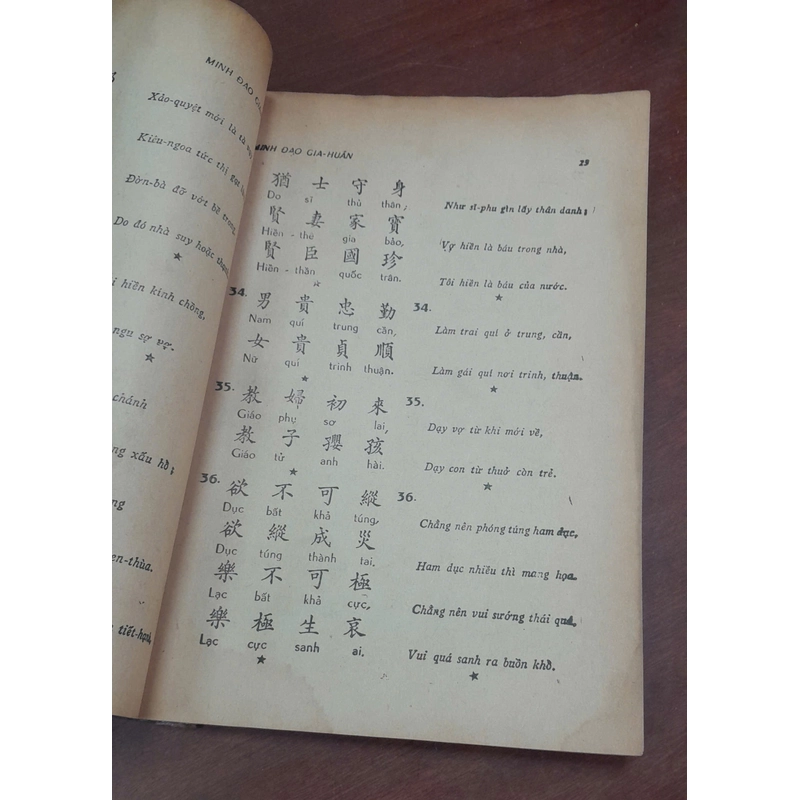 MINH ĐẠO
Xảo-quyệt mới là
Kiều-ngoa tức thị
Đờn-bà đỡ vớt bẽ trong,
Do đó nhà suy hoặc
★
hiền kinh chồng,
ngu sợ vợ.
★
chánh
xấu hồ;
ng
en-thùa.
MINH ĐẠO GIA-HUẤN
29
猶 士 守 身
Do sĩ thủ thân;
Như sĩ-phu gìn lấy thân danh;
賢 妻 家 寶
Hiền - thê gia bảo,
Vợ hiền là báu trong nhà,
賢 臣 國 珍
Hiền - thần quốc trân.
Tôi hiền là báu của nước.
★
34. 男 貴 忠 勤
Nam quí trung cần,
34.
Làm trai quí ở trung, cần,
女 貴 貞 順
Nữ quí trinh thuận.
Làm gái quí nơi trinh, thuận.
★
★
35. 教 婦 初 來
Giáo phụ sơ lai,
35.
Dạy vợ từ khi mới về,
教 子 孾 孩
Giáo tử anh hài.
Dạy con từ thuở còn trẻ.
★
★
36. 欲 不 可 縱
Dục bất khả túng,
36.
Chẳng nên phóng túng ham dục,
欲 縱 成 災
Dục túng thành tai.
Ham dục nhiều thì mang họa.
樂 不 可 極
Lạc bất khả cực,
Chẳng nên vui sướng thái quá,
樂 極 生 哀
Lạc cực sanh ai.
Vui quá sanh ra buồn khổ.
★
★